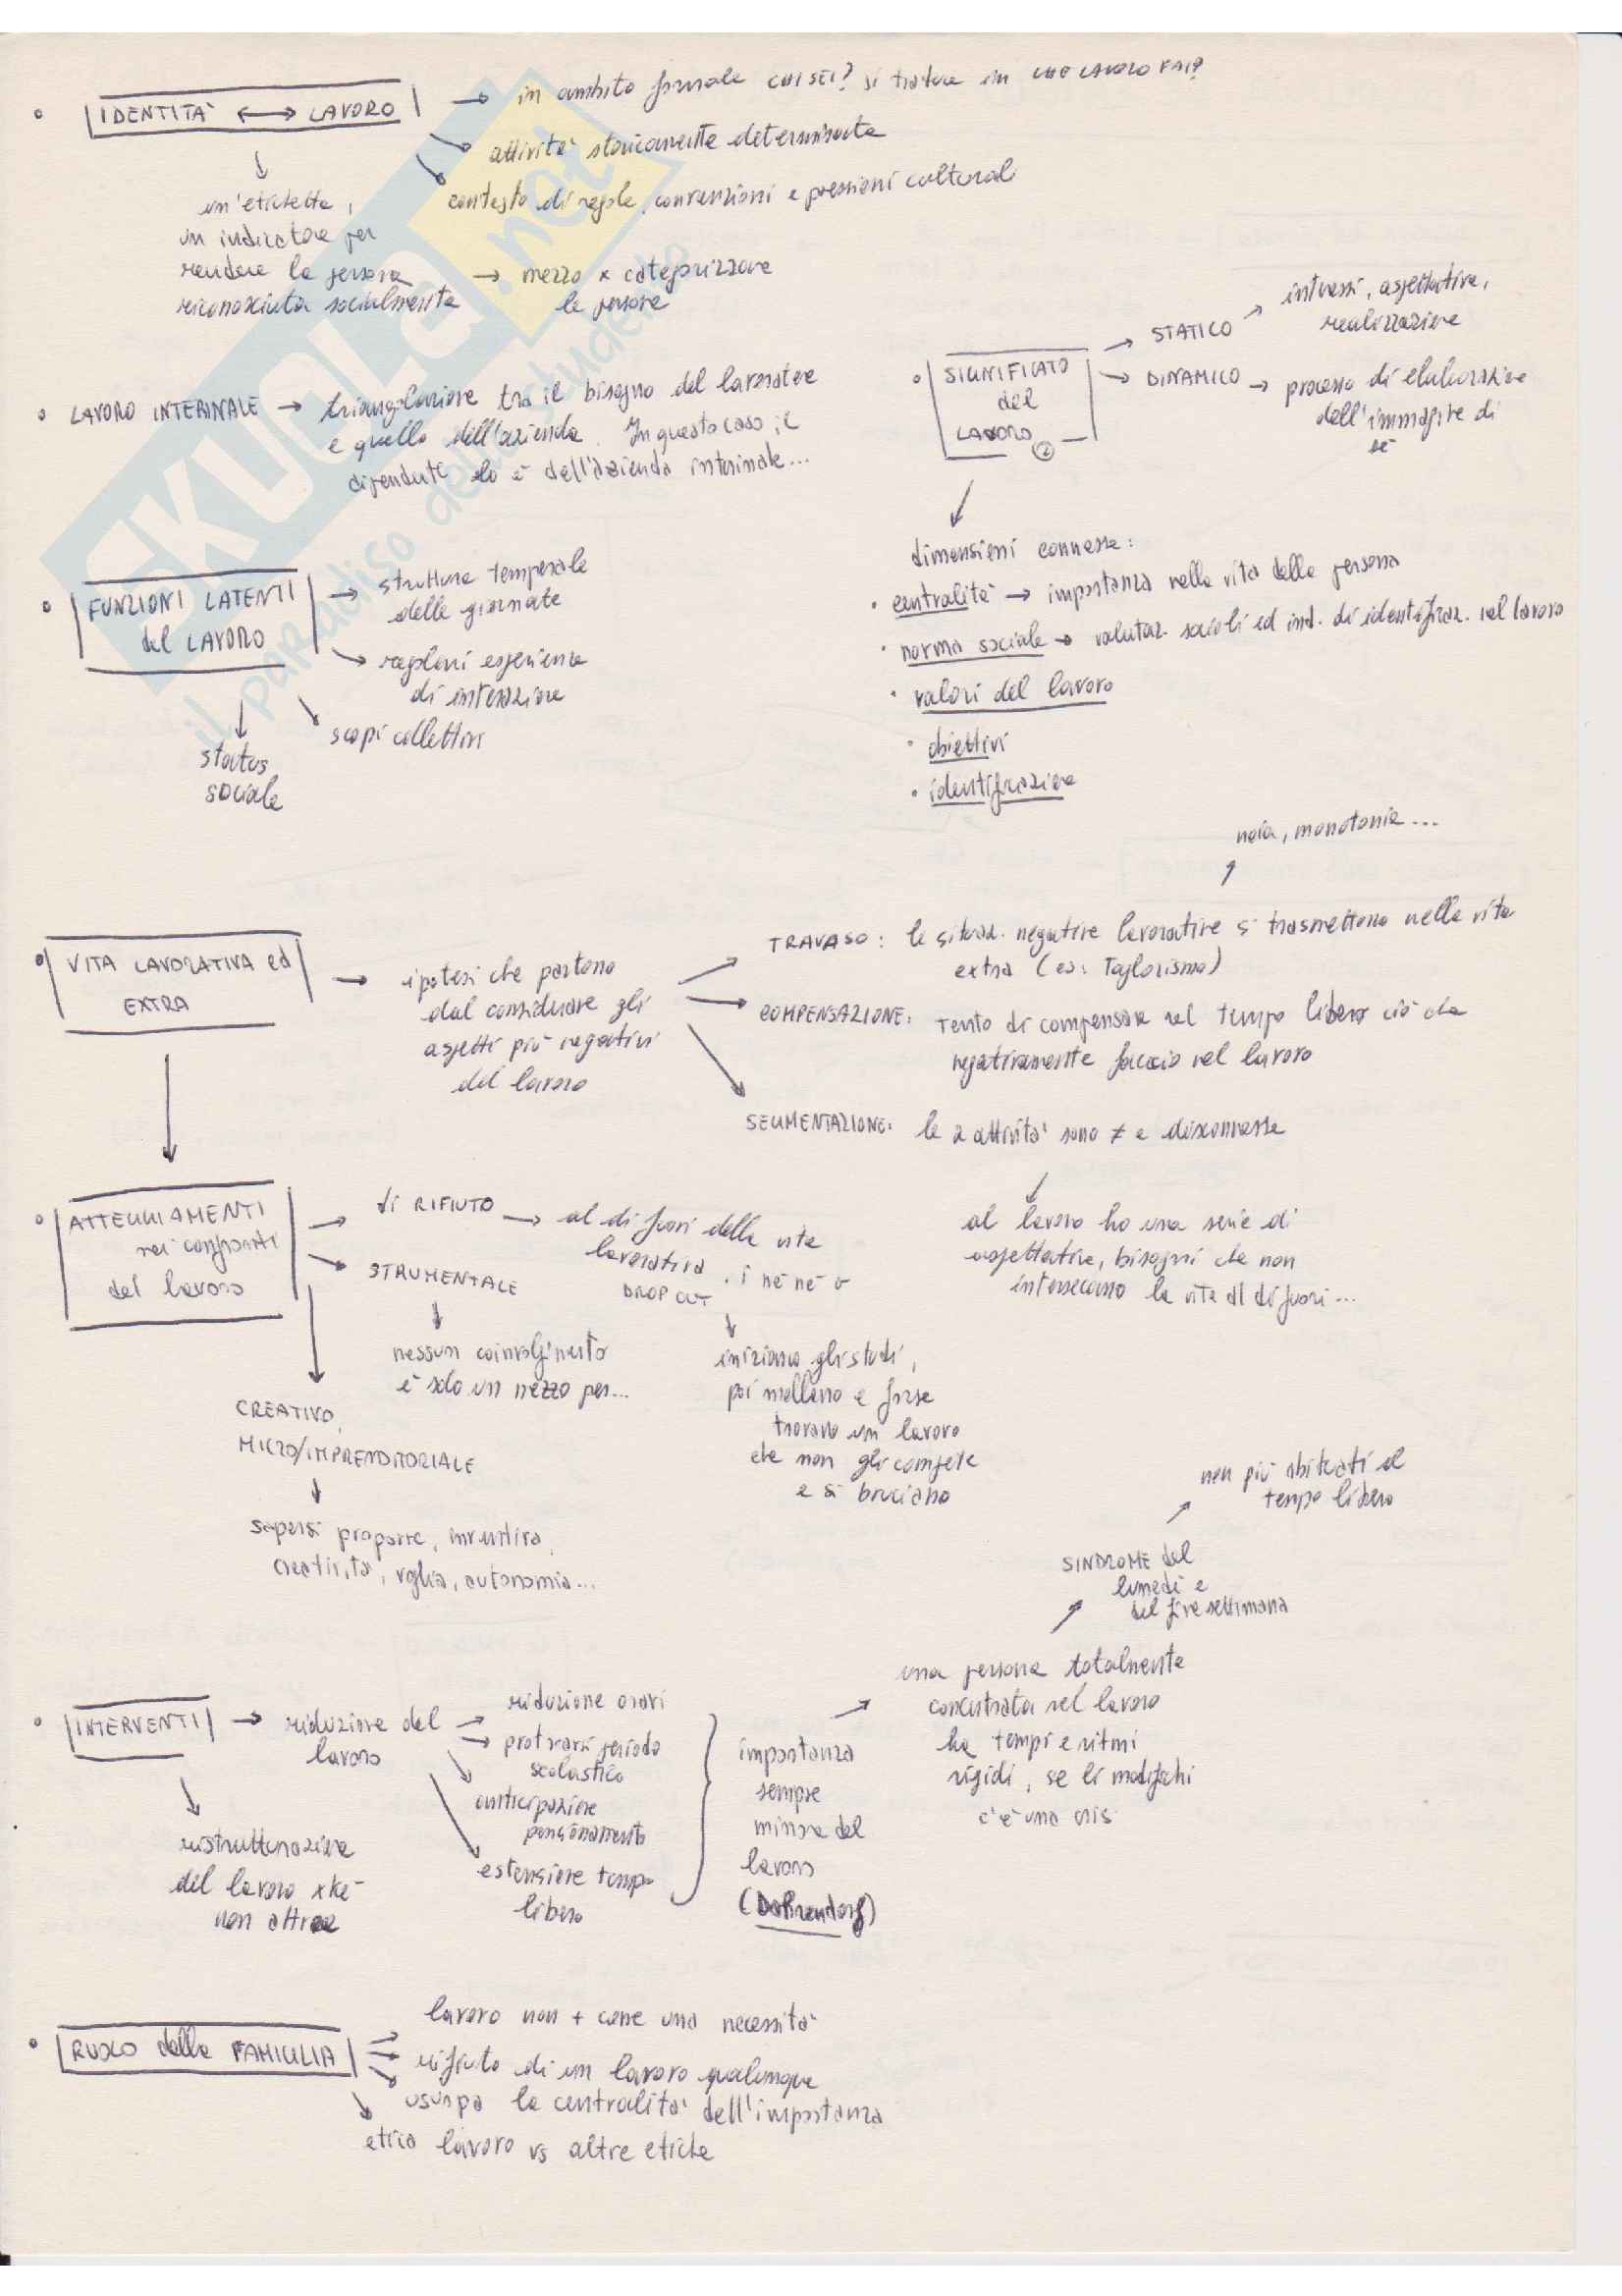 IDENTITÀ ↔ LAVORO → in ambito formale CHI SEI? si traduce in CHE LAVORO FAI?
attività storicamente determinata
contesto di regole, convenzioni e pressioni culturali
un'etichetta,
un indicatore per
rendere la persona
riconosciuta socialmente
→ mezzo x categorizzare
le persone
LAVORO INTERINALE → triangolazione tra il bisogno del lavoratore
e quello dell'azienda. In questo caso il
dipendente lo è dell'azienda interinale...
SIGNIFICATO
del
LAVORO 2
→ STATICO → interessi, aspettative,
realizzazione
→ DINAMICO → processo di elaborazione
dell'immagine di
sè
dimensioni connesse:
centralità → importanza nella vita della persona
norma sociale → valutaz. sociali ed ind. di identificaz. nel lavoro
valori del lavoro
obiettivi
identificazione
FUNZIONI LATENTI
del LAVORO
→ struttura temporale
delle giornate
regolari esperienze
di interazione
scopi collettivi
status
sociale
VITA LAVORATIVA ed
EXTRA
→ ipotesi che partono
dal considerare gli
aspetti più negativi
del lavoro
noia, monotonia...
TRAVASO: le situaz. negative lavorative si trasmettono nella vita
extra (es: Taylorismo)
COMPENSAZIONE: tento di compensare nel tempo libero ciò che
negativamente faccio nel lavoro
SEGMENTAZIONE: le 2 attività sono ≠ e disconnesse
al lavoro ho una serie di
aspettative, bisogni che non
intersecano la vita al di fuori...
ATTEGGIAMENTI
nei confronti
del lavoro
di RIFIUTO → al di fuori della vita
lavorativa, i nè nè o
DROP OUT
iniziano gli studi,
poi mollano e forse
trovano un lavoro
che non gli compete
e si bruciano
STRUMENTALE
nessun coinvolgimento
è solo un mezzo per...
CREATIVO,
MICRO/IMPRENDITORIALE
sapersi proporre, inventiva,
creatività, voglia, autonomia...
INTERVENTI → riduzione del
lavoro
→ riduzione orari
→ protrarsi periodo
scolastico
anticipazione
pensionamento
estensione tempo
libero
importanza
sempre
minore del
lavoro
(Dahrendorf)
→ una persona totalmente
concentrata nel lavoro
ha tempi e ritmi
rigidi, se li modifichi
c'è una crisi
SINDROME del
lunedì e
del fine settimana
non più abituati al
tempo libero
ristrutturazione
del lavoro xkè
non attrae
RUOLO della FAMIGLIA
lavoro non + come una necessità
rifiuto di un lavoro qualunque
usurpa la centralità dell'importanza
etica lavoro vs altre etiche
SKUOLA.net
il paradiso dello studente